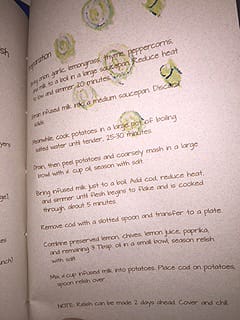 Preparation
Bring onion, garlic, lemongrass, thyme, peppercorns,
and milk to a boil in a large saucepan. Reduce heat
to low and simmer 20 minutes.
Drain infused milk into a medium saucepan. Discard
solids.
Meanwhile, cook potatoes in a large pot of boiling
salted water until tender, 25-30 minutes.
Drain, then peel potatoes and coarsely mash in a large
bowl with ¼ cup oil, season with salt.
Bring infused milk just to a boil. Add cod, reduce heat,
and simmer until flesh begins to flake and is cooked
through, about 5 minutes.
Remove cod with a slotted spoon and transfer to a plate.
Combine preserved lemon, chives, lemon juice, paprika,
and remaining 3 Tbsp. oil in a small bowl, season relish
with salt.
Mix ¼ cup infused milk into potatoes. Place cod on potatoes,
spoon relish over.
NOTE: Relish can be made 2 days ahead. Cover and chill.